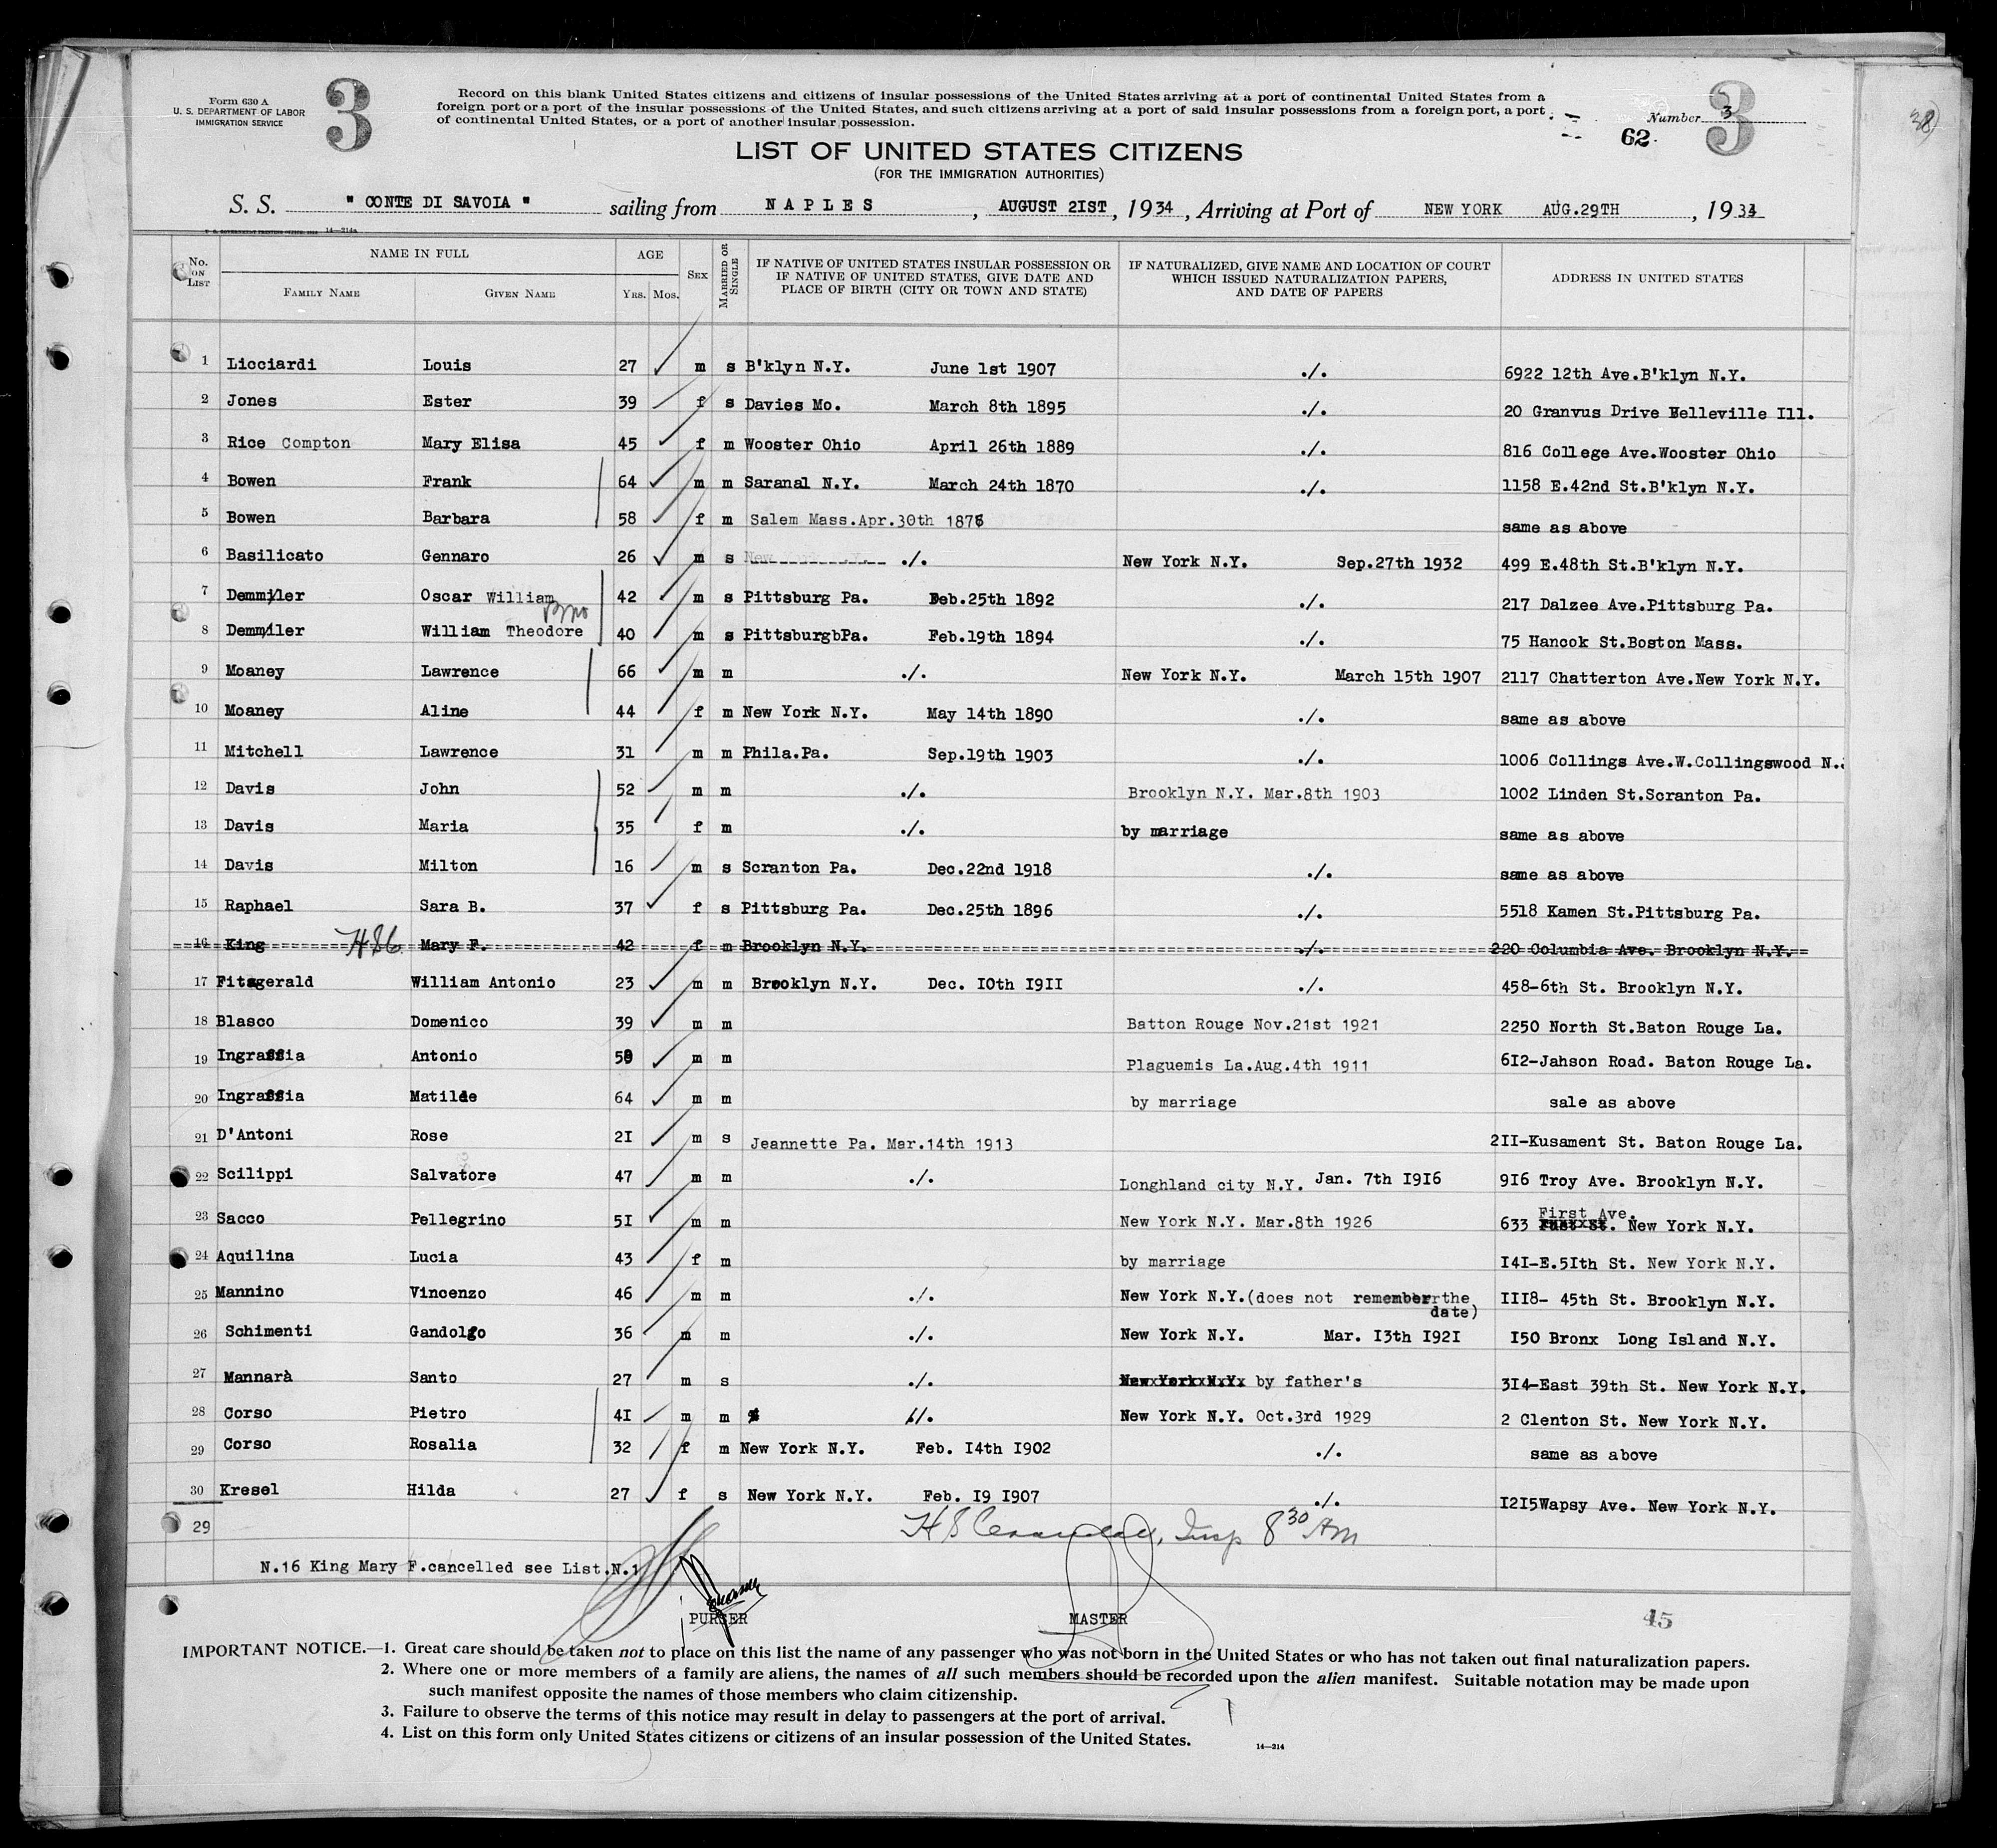 Form 630 A
U. S. DEPARTMENT OF LABOR
IMMIGRATION SERVICE
3
Record on this blank United States citizens and citizens of insular possessions of the United States arriving at a port of continental United States from a
foreign port or a port of the insular possessions of the United States, and such citizens arriving at a port of said insular possessions from a foreign port, a port
of continental United States, or a port of another insular possession.
Number 3
3
62.
38
LIST OF UNITED STATES CITIZENS
(FOR THE IMMIGRATION AUTHORITIES)
S. S. " CONTE DI SAVOIA " sailing from NAPLES , AUGUST 2IST , 1934 , Arriving at Port of NEW YORK AUG.29TH , 1934
14—214a
No. ON LIST NAME IN FULL FAMILY NAME GIVEN NAME AGE YRS. MOS. SEX MARRIED OR SINGLE IF NATIVE OF UNITED STATES INSULAR POSSESSION OR IF NATIVE OF UNITED STATES, GIVE DATE AND PLACE OF BIRTH (CITY OR TOWN AND STATE) IF NATURALIZED, GIVE NAME AND LOCATION OF COURT WHICH ISSUED NATURALIZATION PAPERS, AND DATE OF PAPERS ADDRESS IN UNITED STATES
1 Licciardi Louis 27 m s B'klyn N.Y. June 1st 1907 ./. 6922 12th Ave.B'klyn N.Y.
2 Jones Ester 39 f s Davies Mo. March 8th 1895 ./. 20 Granvus Drive Belleville Ill.
3 Rice Compton Mary Elisa 45 f m Wooster Ohio April 26th 1889 ./. 816 College Ave.Wooster Ohio
4 Bowen Frank 64 m m Saranal N.Y. March 24th 1870 ./. 1158 E.42nd St.B'klyn N.Y.
5 Bowen Barbara 58 f m Salem Mass.Apr.30th 1876 same as above
6 Basilicato Gennaro 26 m s New York N.Y. ./. New York N.Y. Sep.27th 1932 499 E.48th St.B'klyn N.Y.
7 Demmler Oscar William 42 m s Pittsburg Pa. Feb.25th 1892 ./. 217 Dalzee Ave.Pittsburg Pa.
8 Demmler William Theodore 40 m s PittsburgbPa. Feb.19th 1894 ./. 75 Hancok St.Boston Mass.
9 Moaney Lawrence 66 m m ./. New York N.Y. March 15th 1907 2117 Chatterton Ave.New York N.Y.
10 Moaney Aline 44 f m New York N.Y. May 14th 1890 ./. same as above
11 Mitchell Lawrence 31 m m Phila.Pa. Sep.19th 1903 ./. 1006 Collings Ave.W.Collingswood N.
12 Davis John 52 m m ./. Brooklyn N.Y. Mar.8th 1903 1002 Linden St.Scranton Pa.
13 Davis Maria 35 f m ./. by marriage same as above
14 Davis Milton 16 m s Scranton Pa. Dec.22nd 1918 ./. same as above
15 Raphael Sara B. 37 f s Pittsburg Pa. Dec.25th 1896 ./. 5518 Kamen St.Pittsburg Pa.
16 King H86 Mary F. 42 f m Brooklyn N.Y. ./. 220 Columbia Ave. Brooklyn N.Y.
17 Fitzgerald William Antonio 23 m m Brooklyn N.Y. Dec. I0th I9II ./. 458-6th St. Brooklyn N.Y.
18 Blasco Domenico 39 m m Batton Rouge Nov.21st 1921 2250 North St.Baton Rouge La.
19 Ingraffia Antonio 58 m m Plaguemis La.Aug.4th 1911 6I2-Jahson Road. Baton Rouge La.
20 Ingraffia Matilde 64 m m by marriage sale as above
21 D'Antoni Rose 2I m s Jeannette Pa. Mar.14th 1913 2II-Kusament St. Baton Rouge La.
22 Scilippi Salvatore 47 m m ./. Longhland city N.Y. Jan. 7th I9I6 9I6 Troy Ave. Brooklyn N.Y.
23 Sacco Pellegrino 5I m m New York N.Y. Mar.8th 1926 633 First Ave. New York N.Y.
24 Aquilina Lucia 43 f m by marriage I4I-E.5Ith St. New York N.Y.
25 Mannino Vincenzo 46 m m ./. New York N.Y.(does not rememberrthe date) III8- 45th St. Brooklyn N.Y.
26 Schimenti Gandolgo 36 m m ./. New York N.Y. Mar. I3th I92I I50 Bronx Long Island N.Y.
27 Mannarà Santo 27 m s ./. NewxYorkxNxYx by father's 3I4-East 39th St. New York N.Y.
28 Corso Pietro 4I m m ./. New York N.Y. Oct.3rd 1929 2 Clenton St. New York N.Y.
29 Corso Rosalia 32 f m New York N.Y. Feb. I4th I902 ./. same as above
30 Kresel Hilda 27 f s New York N.Y. Feb. I9 I907 ./. I2I5Wapsy Ave. New York N.Y.
29
Insp 8 30 AM
N.16 King Mary F.cancelled see List.N.1
PURSER MASTER
45
IMPORTANT NOTICE.—1. Great care should be taken not to place on this list the name of any passenger who was not born in the United States or who has not taken out final naturalization papers.
2. Where one or more members of a family are aliens, the names of all such members should be recorded upon the alien manifest. Suitable notation may be made upon
such manifest opposite the names of those members who claim citizenship.
3. Failure to observe the terms of this notice may result in delay to passengers at the port of arrival.
4. List on this form only United States citizens or citizens of an insular possession of the United States.
14—214